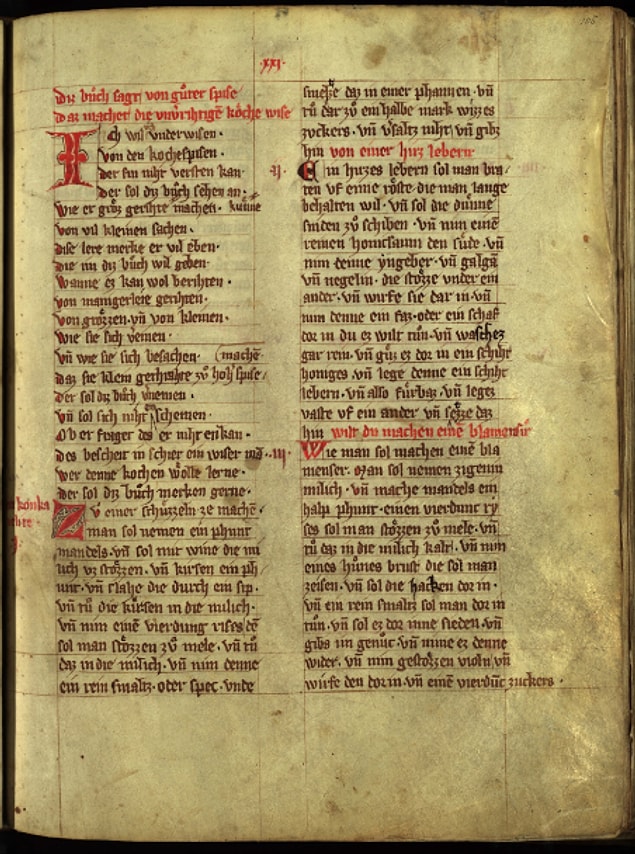 106
·xxi·
Diz bůch sagt von gůter spise
Daz machet die vnv̂rihtigē kôche wise
Ich wil vnderwisen·
von den kochespisen·
der sin niht versten kan·
der sol diz bůch sehen an·
wie er grôz gerihte machen· kunne
von vil kleinen sachen·
dise lere merke er vil eben·
die im diz bůch wil geben·
wanne ez kan wol berihten·
von mangerleie gerihten·
von grôzzen· vñ von kleinen·
wie sie sich vereinen·
vñ wie sie sich besachen· (machē·
daz sie klein gerihte zů hoh spise/
der sol diz bůch vernemen·
vñ sol sich niht schemen·
Ob er fraget des er niht enkan·
des bescheit in schier ein wiser mā·
wer denne kochen wôlle lerne·
der sol diz bůch merken gerne·
konka
Zů einer schůzzeln ze machē·
man sol nemen ein phunt
mandels· vñ sol mit wine die mi
lich vz stôzzen· vñ kirsen ein ph
unt· vñ slahe die durch ein sip·
vñ tů die kirsen in die milich·
vñ nim einē vierdung rises dē
sol man stôzzen zů mele· vñ tů
daz in die milich· vñ nim denne
ein rein smaltz· oder spec· vnde
smeltze daz in einer phannen· vñ
tů dar zů ein halbe mark wizzes
zvckers· vñ v̓saltz niht· vñ gibz
hin von einer hirz lebern
·ij· Ein hirzes lebern sol man bra/
ten vf eine rôste die man lange
behalten wil· vñ sol die dunne
sniden zů schiben· vñ nim einē
reinen honicsaum den süde· vñ
nim denne yngeber· vñ galgā
vñ negelin· die stôzze vnder ein
ander· vñ wirfe sie dar in· vñ
nim denne ein faz· oder ein schaf
dor in du ez wilt tůn· vñ waschez
gar rein· vñ gůz ez dor in ein schiht
honiges· vñ lege denne ein schiht
lebern· vñ also fürbaz· vñ legez
vaste vf ein ander· vñ setze daz
hin wilt du machen einē blamensir
·iij· Wie man sol machen einē bla
menser· Man sol nemen zigenin
milich· vñ mache mandels ein
halp phunt· einen vierdunc ry
ses sol man stôzzen zů mele· vñ
tů daz in die milich kalt· vñ nim
eines hůnes brust die sol man
zeisen· vñ sol die hacken dor in·
vñ ein rein smaltz sol man dor in
tůn· vñ sol ez dor inne sieden· vñ
gibs im genůc· vñ nime ez denne
wider· vñ nim gestôzzen violn vñ
wirfe den dor in· vñ einē vierdūc zuckers·